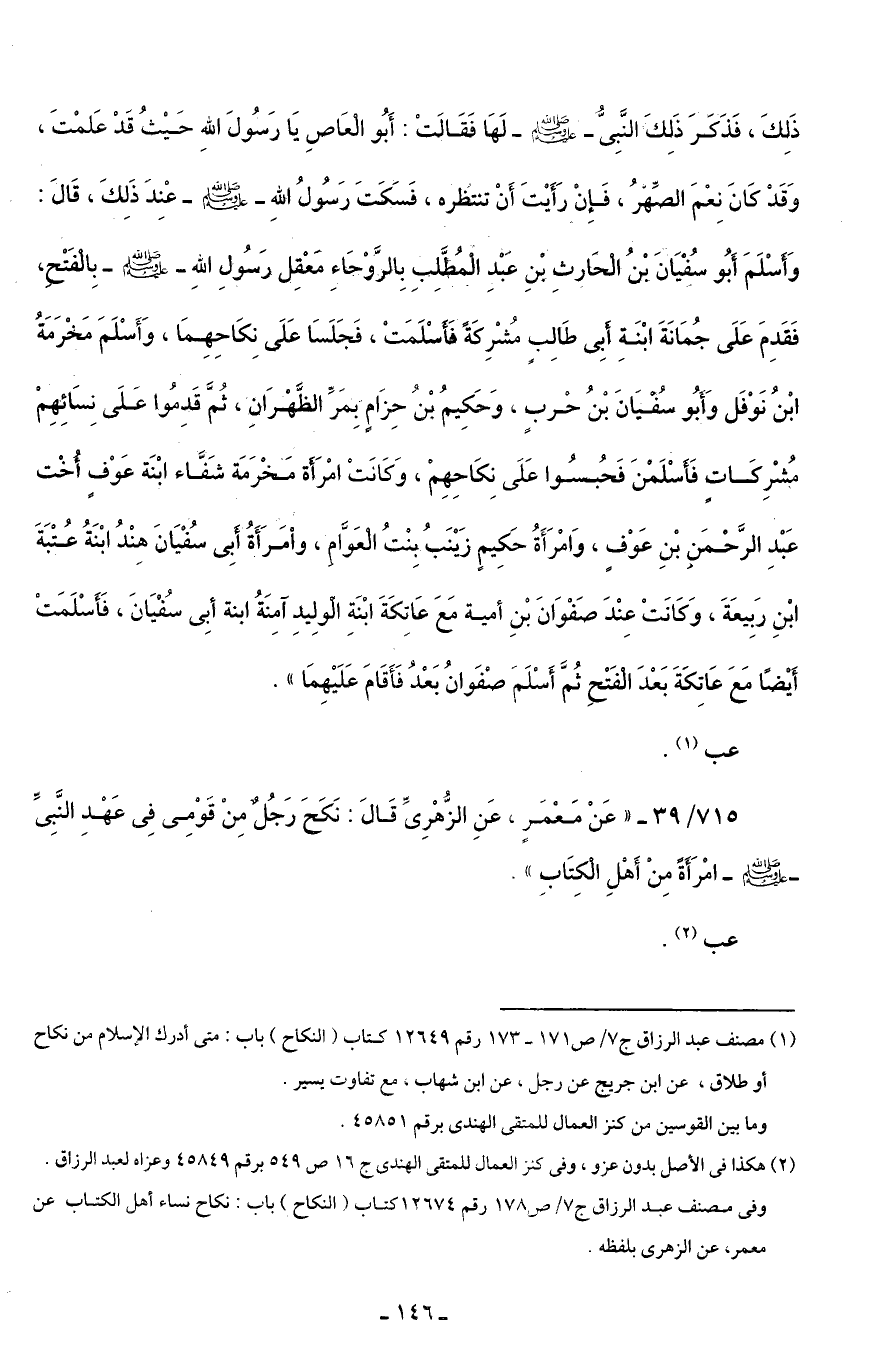 ذَلِكَ ، فَذَكَرَ ذَلِكَ النَّبِىُّ - ﷺ - لَهَا فَقَالَتْ : أَبُو الْعَاصِ يَا رَسُولَ اللهِ حَيْثُ قَدْ عَلِمْتَ ،
وَقَدْ كَانَ نِعْمَ الصِّهْرُ ، فَإِنْ رَأَيْتَ أَنْ تنتظره ، فَسَكَتَ رَسُولُ اللهِ - ﷺ - عِنْدَ ذَلِكَ ، قَالَ :
وَأَسْلَمَ أَبُو سُفْيَانَ بْنُ الْحَارِثِ بْنِ عَبْدِ الْمُطَّلِبِ بِالرَّوْحَاءِ مَعْقِلِ رَسُولِ اللهِ - ﷺ - بِالْفَتْحِ،
فَقَدِمَ عَلَى جُمَانَةَ ابْنَةِ أَبِى طَالِبٍ مُشْرِكَةً فَأَسْلَمَتْ ، فَجَلَسَا عَلَى نِكَاحِهِمَا ، وَأَسْلَمَ مَخْرَمَةُ
ابْنُ نَوْفَلٍ وَأَبُو سُفْيَانَ بْنُ حْرَبٍ ، وَحَكِيمُ بْنُ حِزَامٍ بِمَرِّ الظَّهْرَانِ ، ثُمَّ قَدِمُوا عَلَى نِسَائِهِمْ
مُشْرِكَاتٍ فَأَسْلَمْنَ فَحُبِسُوا عَلَى نِكَاحِهِمْ ، وَكَانَتْ امْرَأَة مَخْرَمَة شَفَّاء ابْنَة عَوْفٍ أُخْت
عَبْدِ الرَّحْمَنِ بْنِ عَوْفٍ ، وَامْرَأَةُ حَكِيمٍ زَيْنَبُ بِنْتُ الْعَوَّامِ ، وأمَرَأَةُ أَبِى سُفْيَانَ هِنْدُ ابْنَةُ عُتْبَةَ
ابْنِ رَبِيعَةَ ، وَكَانَتْ عِنْدَ صَفْوَانَ بْنِ أمية مَعَ عَاتِكَةَ ابْنَةِ الْوَلِيدِ آمنَةُ ابنة أبى سُفْيَانَ ، فَأَسْلَمَتْ
أَيْضًا مَعَ عَاتِكَةَ بَعْدَ الْفَتْحِ ثُمَّ أَسْلَمَ صَفْوانُ بَعْدُ فَأَقَامَ عَلَيْهِمَا » .
عب (١) .
٣٩/٧١٥ - « عَنْ مَعْمَرٍ ، عَنِ الزُّهْرِىِّ قَالَ : نَكَحَ رَجُلٌ مِنْ قَوْمِى فِى عَهْدِ النَّبِىِّ
- ﷺ - امْرَأَةً مِنْ أَهْلِ الْكِتَابِ » .
عب (٢) .
(١) مصنف عبد الرزاق ج٧/ ص١٧١ - ١٧٣ رقم ١٢٦٤٩ كتاب ( النكاح ) باب : متى أدرك الإسلام من نكاح
أو طلاق ، عن ابن جريج عن رجل ، عن ابن شهاب ، مع تفاوت يسير .
وما بين القوسين من كنز العمال للمتقى الهندى برقم ٤٥٨٥١ .
(٢) هكذا فى الأصل بدون عزو ، وفى كنز العمال للمتقى الهندى ج ١٦ ص ٥٤٩ برقم ٤٥٨٤٩ وعزاه لعبد الرزاق .
وفى مصنف عبد الرزاق ج٧/ ص١٧٨ رقم ١٢٦٧٤ كتاب ( النكاح ) باب : نكاح نساء أهل الكتاب عن
معمر، عن الزهرى بلفظه .
- ١٤٦ -